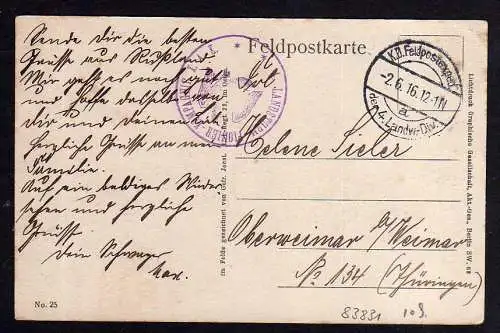 Feldpostkarte
Sende Dir die besten
Grüsse aus Rußland
Mir geht es noch gut
und hoffe dasselbe von
Dir und deinen
herzliche Grüsse an
Familie.
Auf ein baldiges Wieder
sehen und herzliche
Grüsse.
Dein Schwager
Max.
No. 25
Frl.
Helene Sieler
Oberweimar b/Weimar
No 134 (Thüringen)
K.D. Feldpostexped.
-2.6.16.12-1N
a
der 4. Landw.-Div.
83831
Lichtdruck Graphische Gesellschaft, Akt.-Ges., Berlin SW. 68
im Felde gezeichnet von